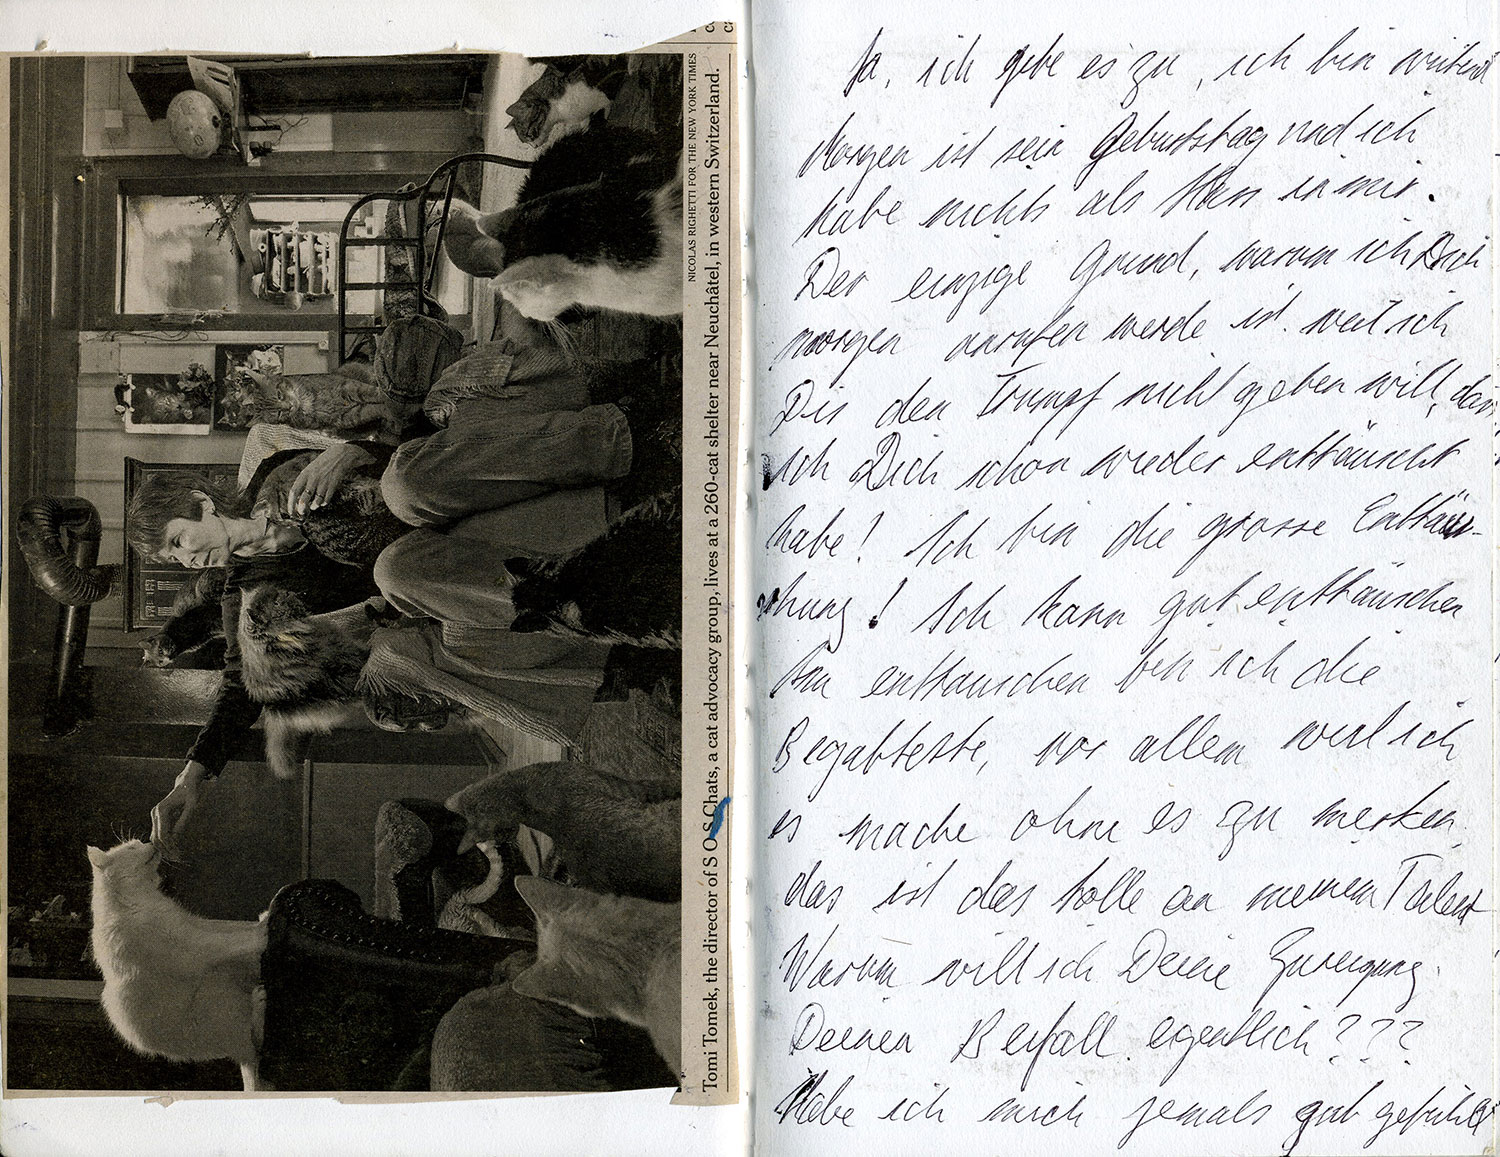 NICOLAS RIGHETTI FOR THE NEW YORK TIMES
Tomi Tomek, the director of S O S Chats, a cat advocacy group, lives at a 260-cat shelter near Neuchâtel, in western Switzerland.
Ja, ich gebe es zu, ich bin wütend
Morgen ist sein Geburtstag und ich
habe nichts als Hass in mir.
Der einzige Grund, warum ich Dich
morgen anrufen werde ist weil ich
Dir den Trumpf nicht geben will, dass
ich Dich schon wieder enttäuscht
habe! Ich bin die grosse Enttäu-
schung! Ich kann gut enttäuschen
Im enttäuschen bin ich die
Begabteste, vor allem weil ich
es mache ohne es zu merken
das ist das tolle an meinem Talent
Warum will ich Deine Zuneigung
Deinen Beifall eigentlich???
Habe ich mich jemals gut gefühlt